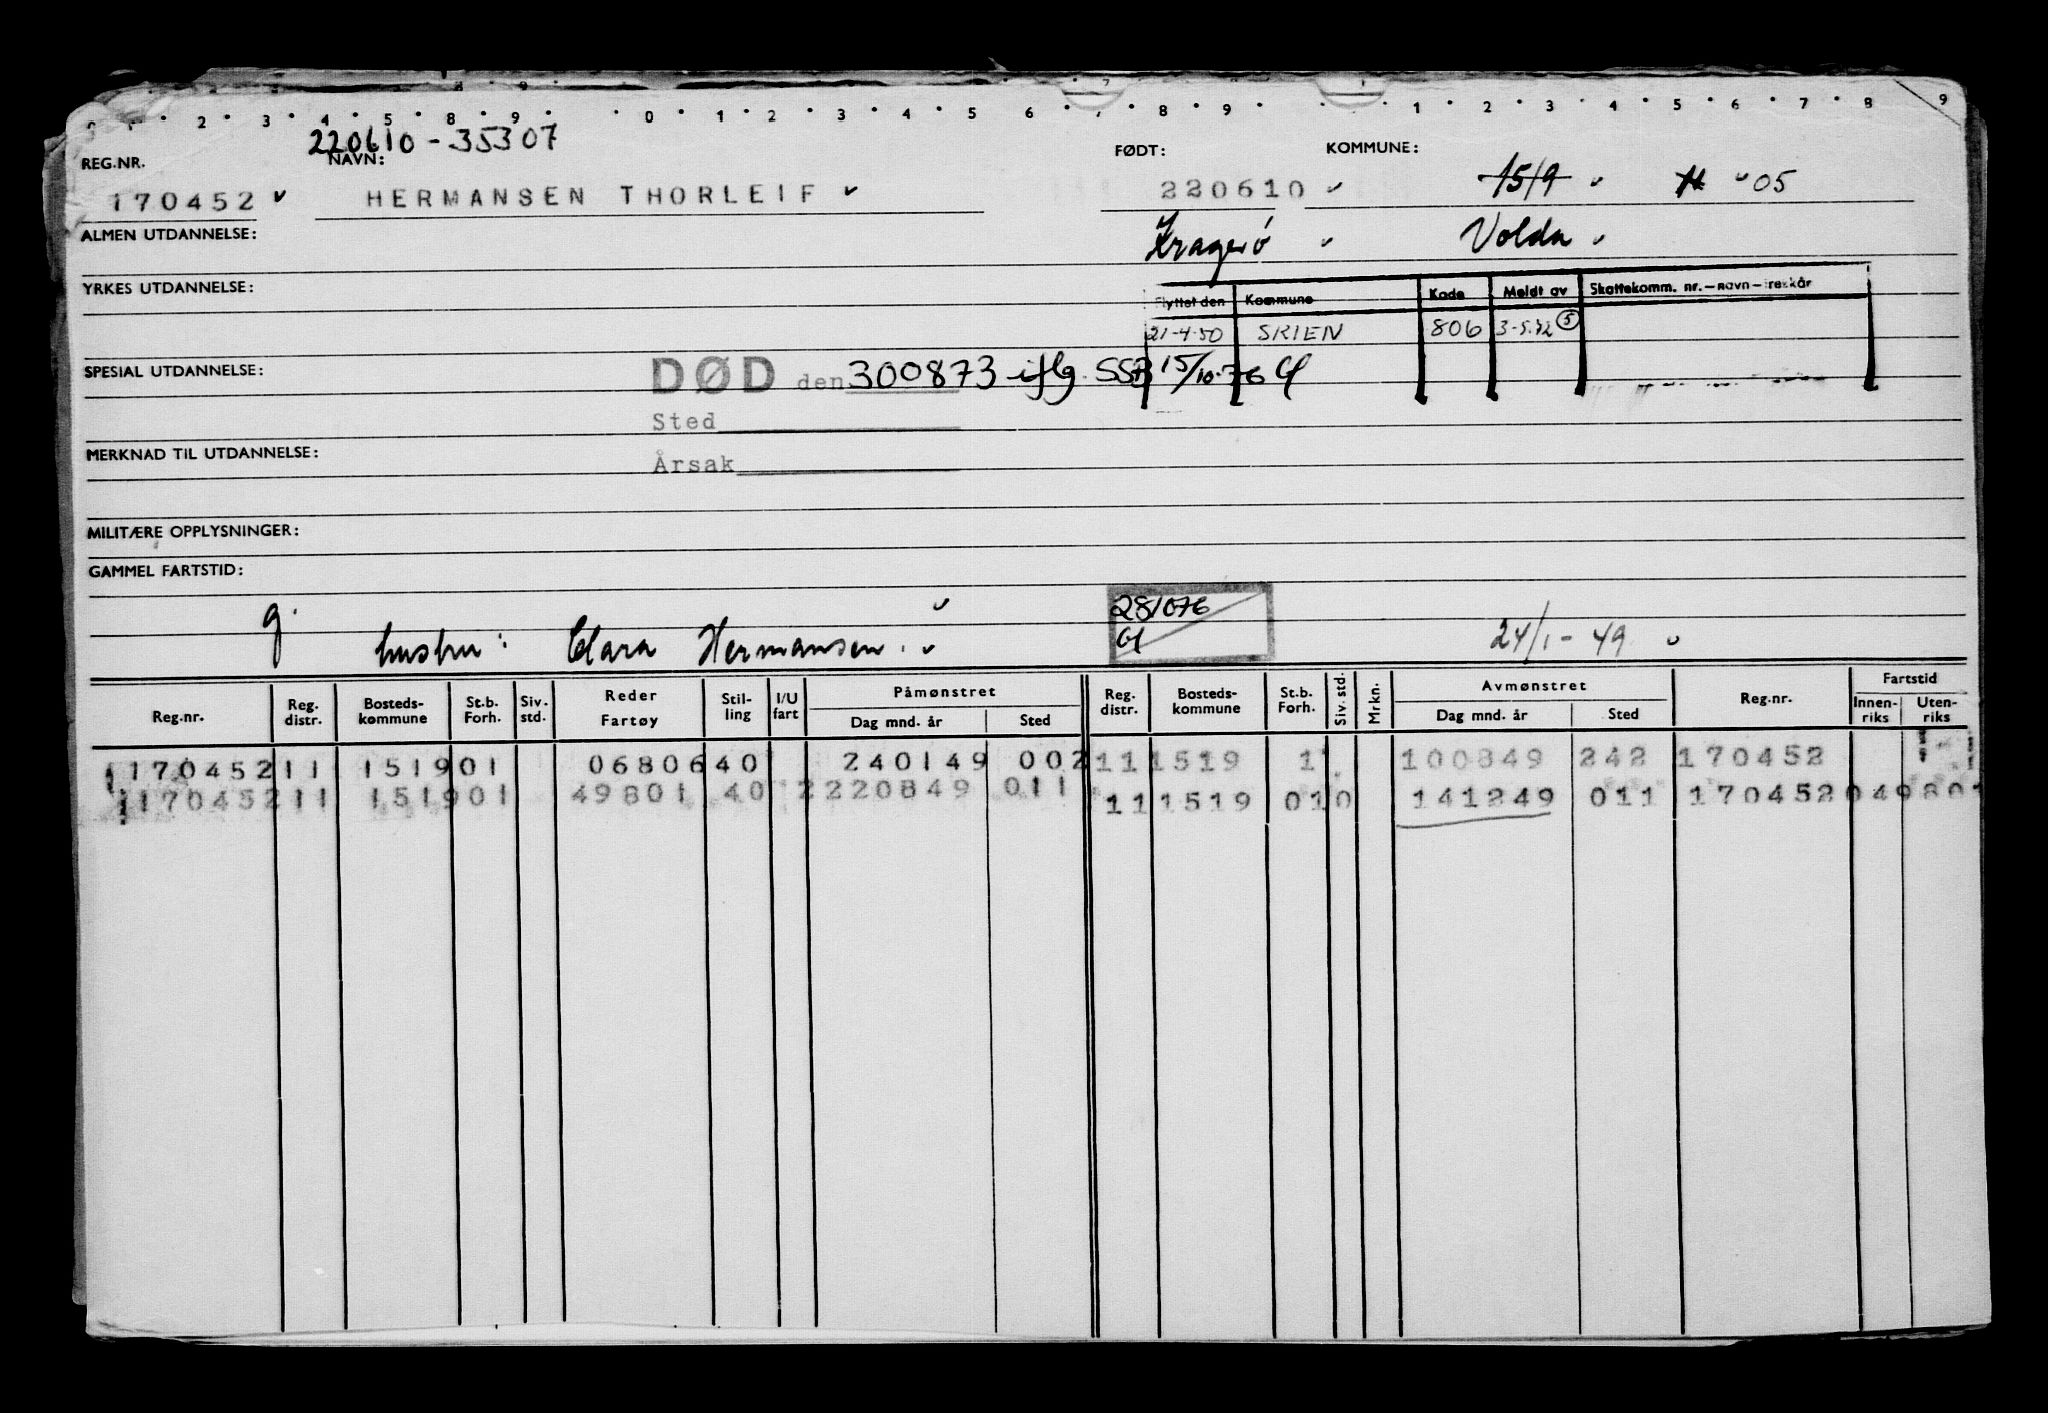 220610-35307
REG.NR. NAVN: FØDT: KOMMUNE:
170452 HERMANSEN THORLEIF 220610 1519 05
ALMEN UTDANNELSE: Kragerø Volda
YRKES UTDANNELSE:
Flyttet den Kommune Kode Meldt av Skattekomm. nr.-navn-
21-4-50 SKIEN 806 3-5.72 5
SPESIAL UTDANNELSE: DØD den 300873 iflg. SSB 15/10-76
Sted
MERKNAD TIL UTDANNELSE: Årsak
MILITÆRE OPPLYSNINGER:
GAMMEL FARTSTID:
g. 281076
hustru: Clara Hermansen. 24/1-49
Reg.nr. Reg. distr. Bosteds-kommune St.b. Forh. Siv. std. Reder Fartøy Stil-ling I/U fart Påmønstret Dag mnd. år Sted Reg. distr. Bosteds-kommune St.b. Forh. Siv. std. Mrkn. Avmønstret Dag mnd. år Sted Reg.nr. Fartstid Innen-riks Uten-riks
170452 11 1519 01 06806 40 240149 002 11 1519 1 100849 242 170452
170452 11 1519 01 49801 40 2 220849 011 11 1519 010 141249 011 170452 049801